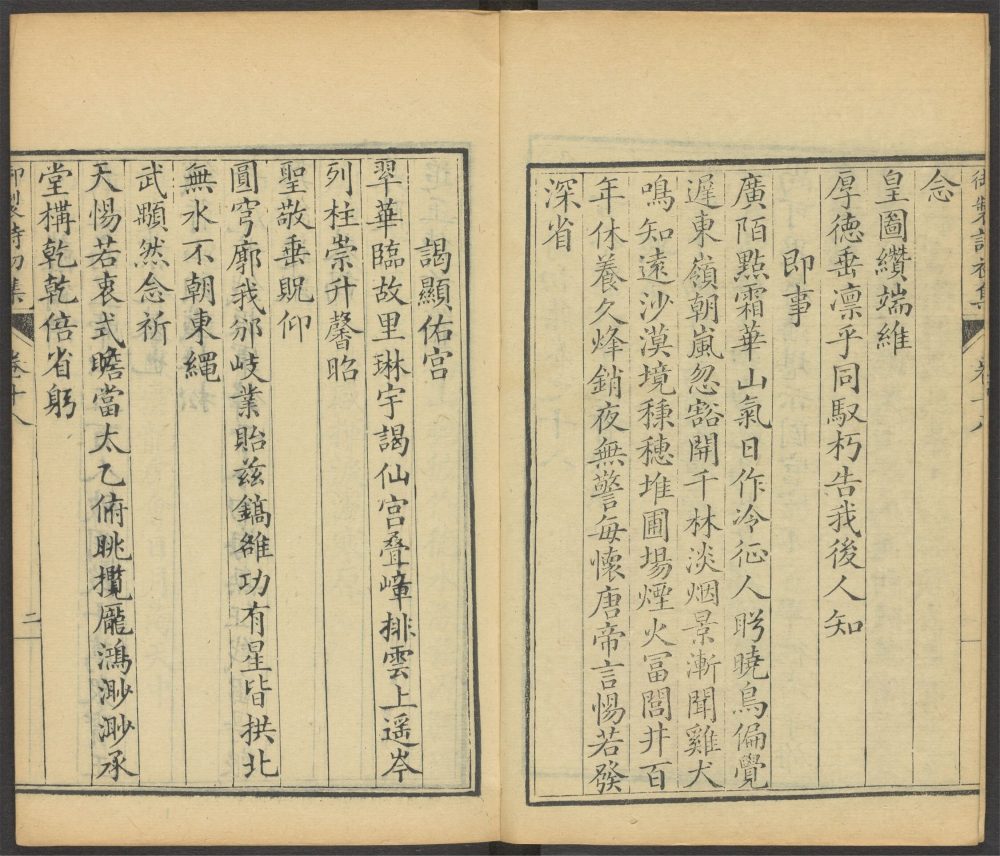 御製詩初集 卷十八
念
皇圖纘端維
厚德垂凛乎同馭朽告我後人知
即事
廣陌點霜華山氣日作冷征人盻曉烏偏覺
遲東嶺朝嵐忽豁開千林淡烟景漸聞雞犬
鳴知遠沙漠境穜穗堆圃場煙火冨閭井百
年休養久烽銷夜無警每懷唐帝言惕若發
深省
謁顯佑宫
翠華臨故里琳宇謁仙宫叠嶂排雲上遥岑
列柱崇升馨昭
聖敬垂貺仰
圓穹廓我邠岐業貽兹鎬雒功有星皆拱北
無水不朝東繩
武顒然念祈
天惕若衷式瞻當太乙俯眺攬厖鴻渺渺承
堂構乾乾倍省躬
御製詩初集 卷十八 二